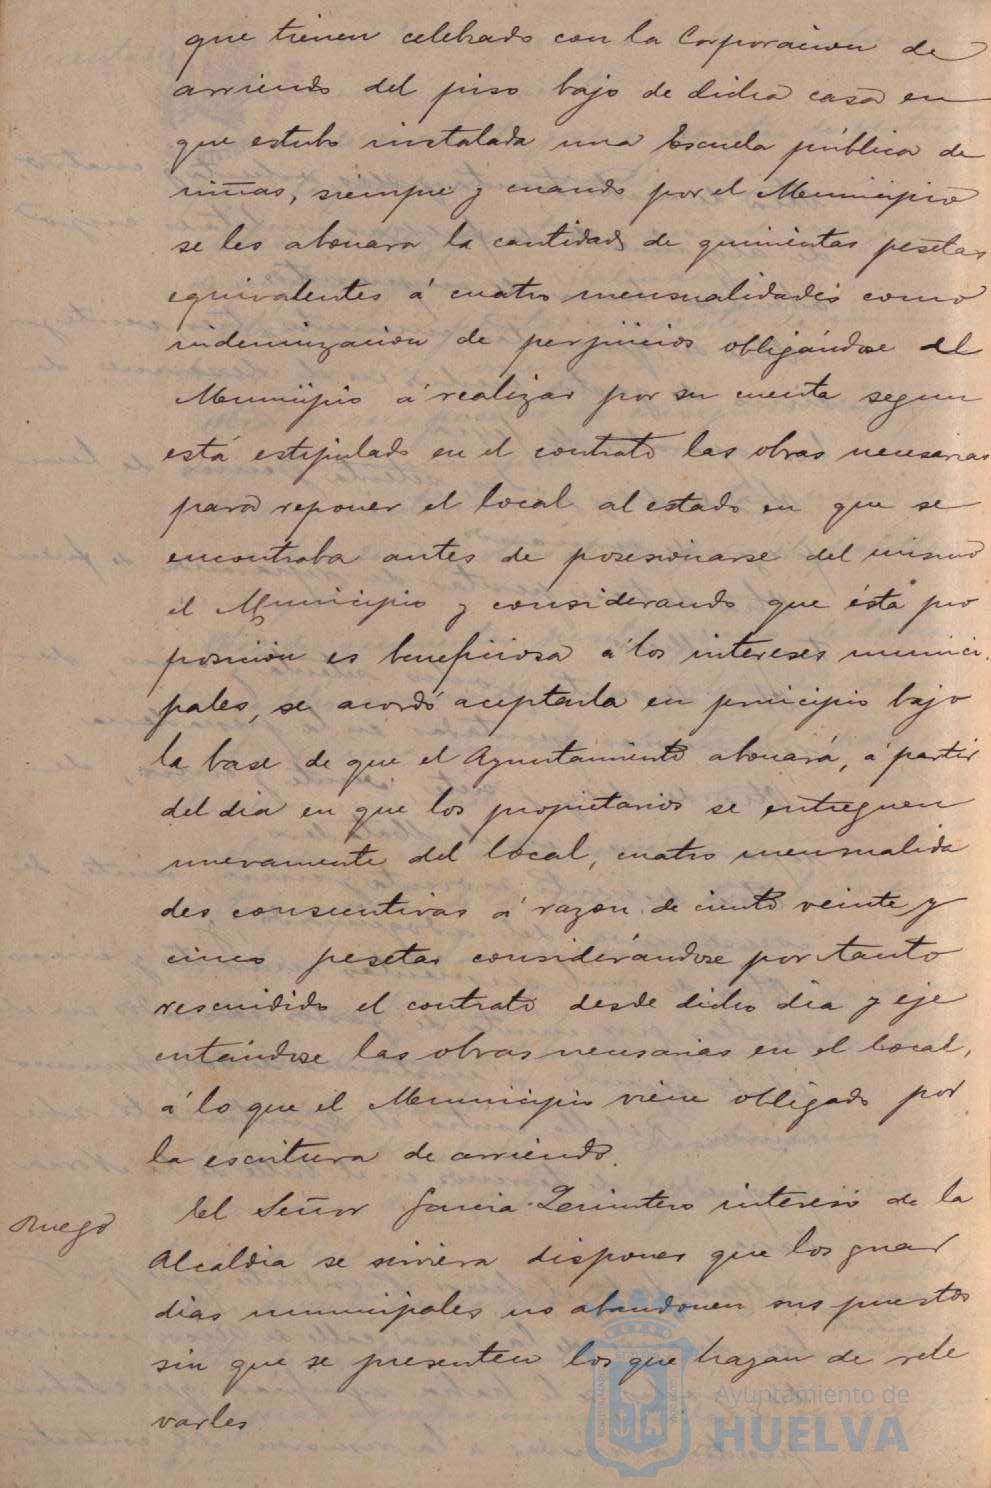 que tienen celebrado con la Corporacion de
arriendo del piso bajo de dicha casa en
que estubo instalada una Escuela pública de
niñas, siempre y cuando por el Municipio
se les abonara la cantidad de quinientas pesetas
equivalentes á cuatro mensualidades como
indemnizacion de perjuicios obligándose el
Municipio á realizar por su cuenta segun
está estipulado en el contrato las obras necesarias
para reponer el local al estado en que se
encontraba antes de posesionarse del mismo
el Municipio y considerando que ésta pro
posición es beneficiosa á los intereses munici
pales, se acordó aceptarla en principio bajo
la base de que el Ayuntamiento abonará, á partir
del dia en que los propietarios se entreguen
nuevamente del local, cuatro mensualida
des consecutivas á razon de ciento veinte y
cinco pesetas considerándose por tanto
rescindido el contrato desde dicho dia y eje
cutándose las obras necesarias en el local,
á lo que el Municipio viene obligado por
la escritura de arriendo.
Ruego El Señor Garcia Quintero interesó de la
Alcaldia se sirviera disponer que los guar
dias municipales no abandonen sus puestos
sin que se presenten los que hayan de rele
varles
Ayuntamiento de
HUELVA